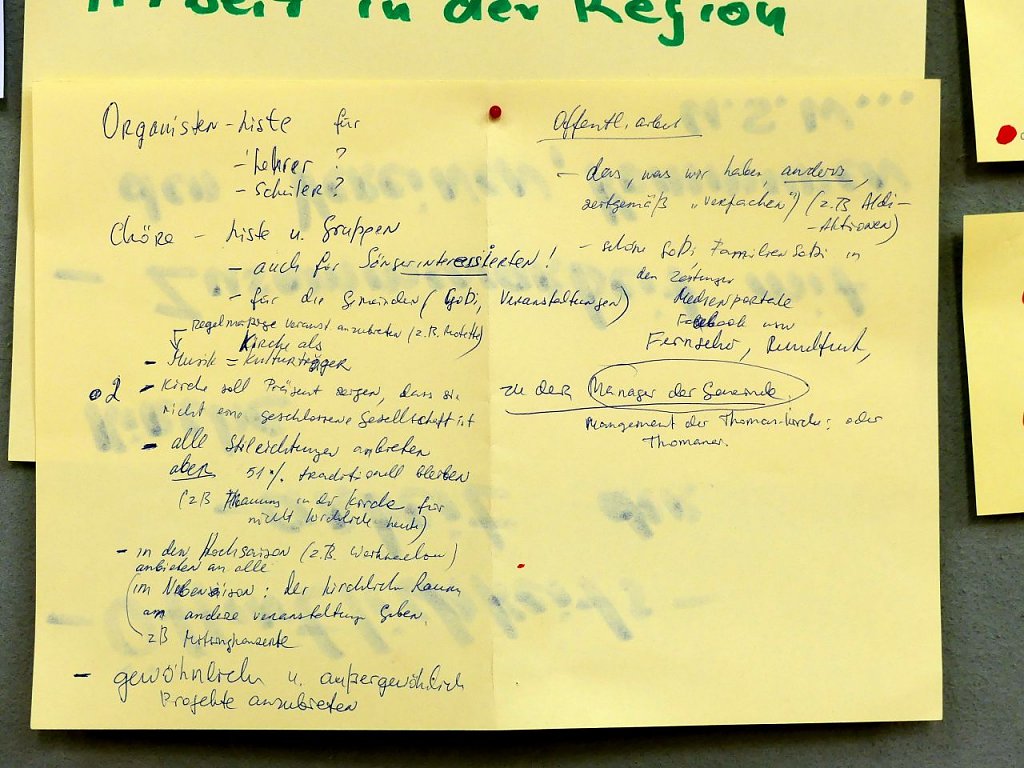 Arbeit in der Region
Organisten-Liste für
- Lehrer?
- Schüler?
Chöre - Liste u. Gruppen
- auch für Sängerinteressierten!
- für die Gemeinden (GoDi, Veranstaltungen)
Regelmäßige Veranst. anzubieten (z.B. Motette)
Kirche als
- Musik = Kulturträger
2 - Kirche soll Präsent zeigen, dass sie
nicht eine geschlossene Gesellschaft ist
- alle Stilrichtungen anbieten
aber 51% traditionell bleiben
(zB Trauung in der Kirche für
nicht kirchlich Leute)
- in den Hochsaison (z.B. Weihnachten)
anbieten an alle
im Nebensaison: der kirchlich Raum
an andere Veranstaltung Geben.
zB
- gewöhnlich u. außergewöhnlich
Projekte anzubieten
Öffentl. arbeit
- das, was wir haben, anders,
zeitgemäß "verpacken") (z.B Aldi-
-Aktionen)
- schön GoDi FamilienGoDi in
den Zeitungen
Medienportale
Facebook usw
Fernseher, Rundfunk,
zu den Manager der Gemeinde.
Management der Thomas-kirche: oder
Thomaner.